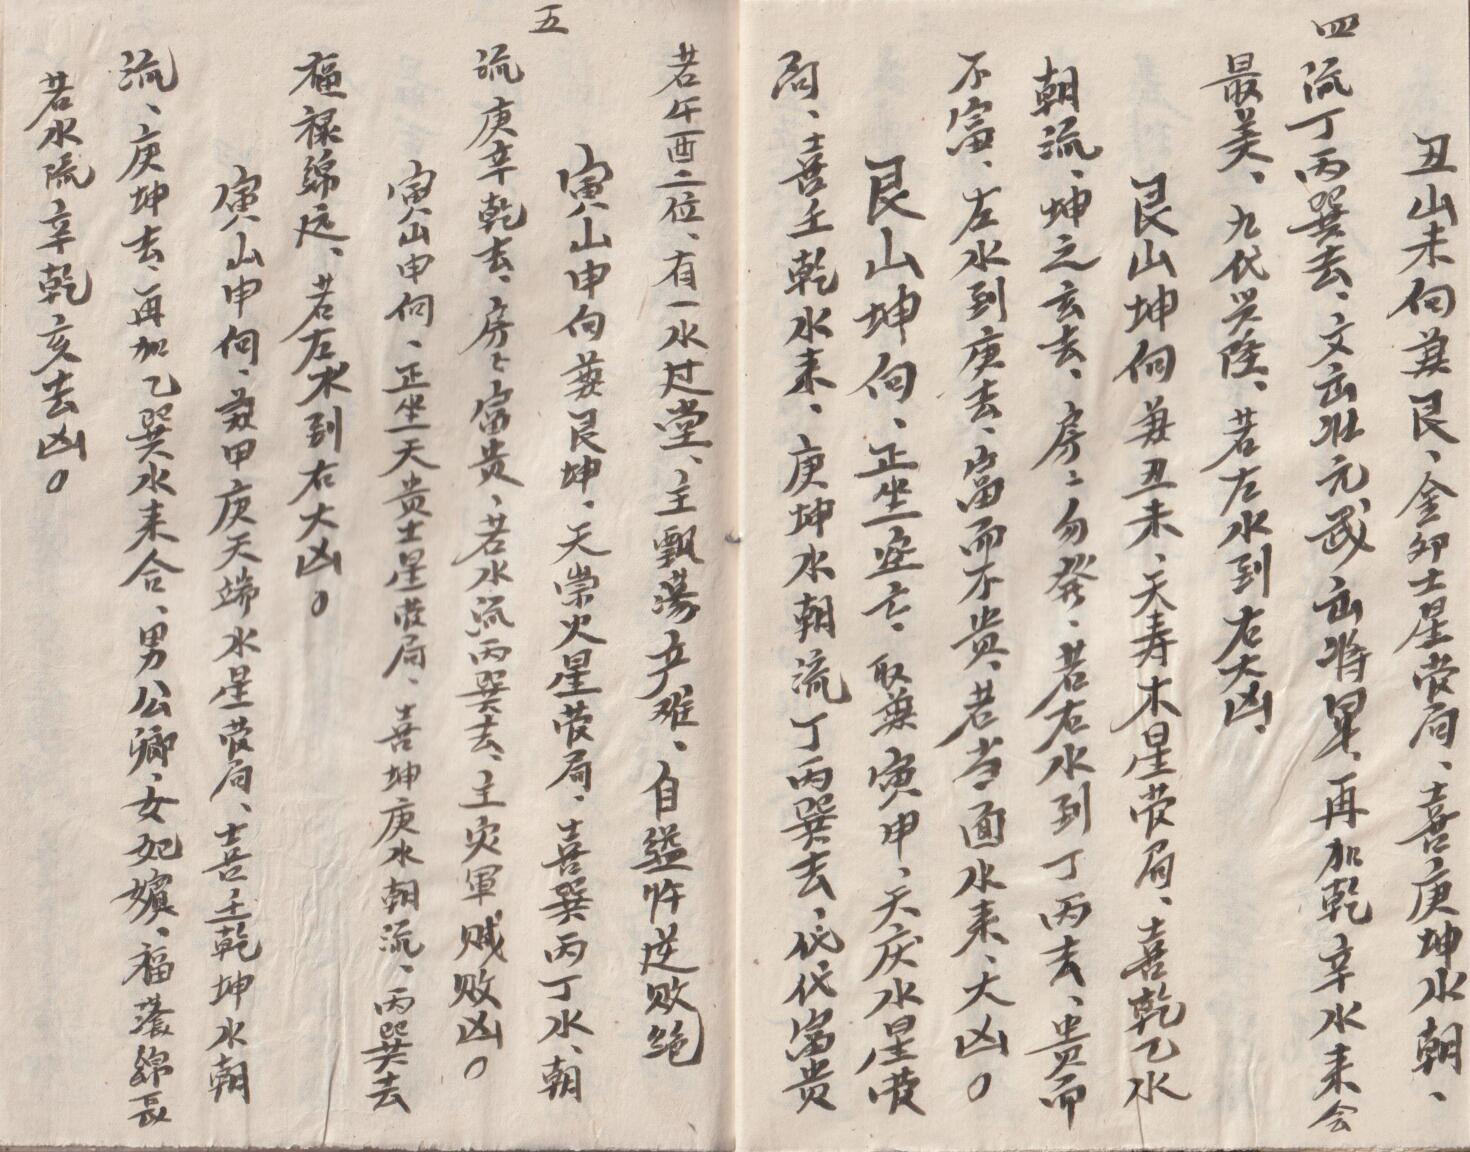 四
丑山未向兼艮、金卯土星营局、喜庚坤水朝、
流丁丙巽去、文出壮元、武出将军、再加乾辛水来会
最美、九代兴隆、若左水到右大凶、
艮山坤向兼丑未、天寿木星营局、喜乾乙水
朝流、坤之玄去、房〻勿发、若右水到丁丙去、贵而
不富、左水到庚去、富而不贵、若当面水来、大凶。
艮山坤向、正坐空亡、取兼寅申、天庆水星营
局、喜壬乾水来、庚坤水朝流丁丙巽去、代代富贵
五
若午酉二位、有一水过堂、主飘荡产难、自缢忤逆败绝
寅山申向兼艮坤、天崇火星营局、喜巽丙丁水、朝
流庚辛乾去、房〻富贵、若水流丙巽去、主灾军贼败凶。
寅山申向、正坐天贵土星营局、喜坤庚水朝流、丙巽去
福禄绵远、若左水到右大凶。
寅山申向、兼甲庚天端水星营局、喜壬乾坤水朝
流、庚坤去、再加乙巽水来合、男公卿、女妃嫔、福泽绵长
若水流辛乾亥去凶。